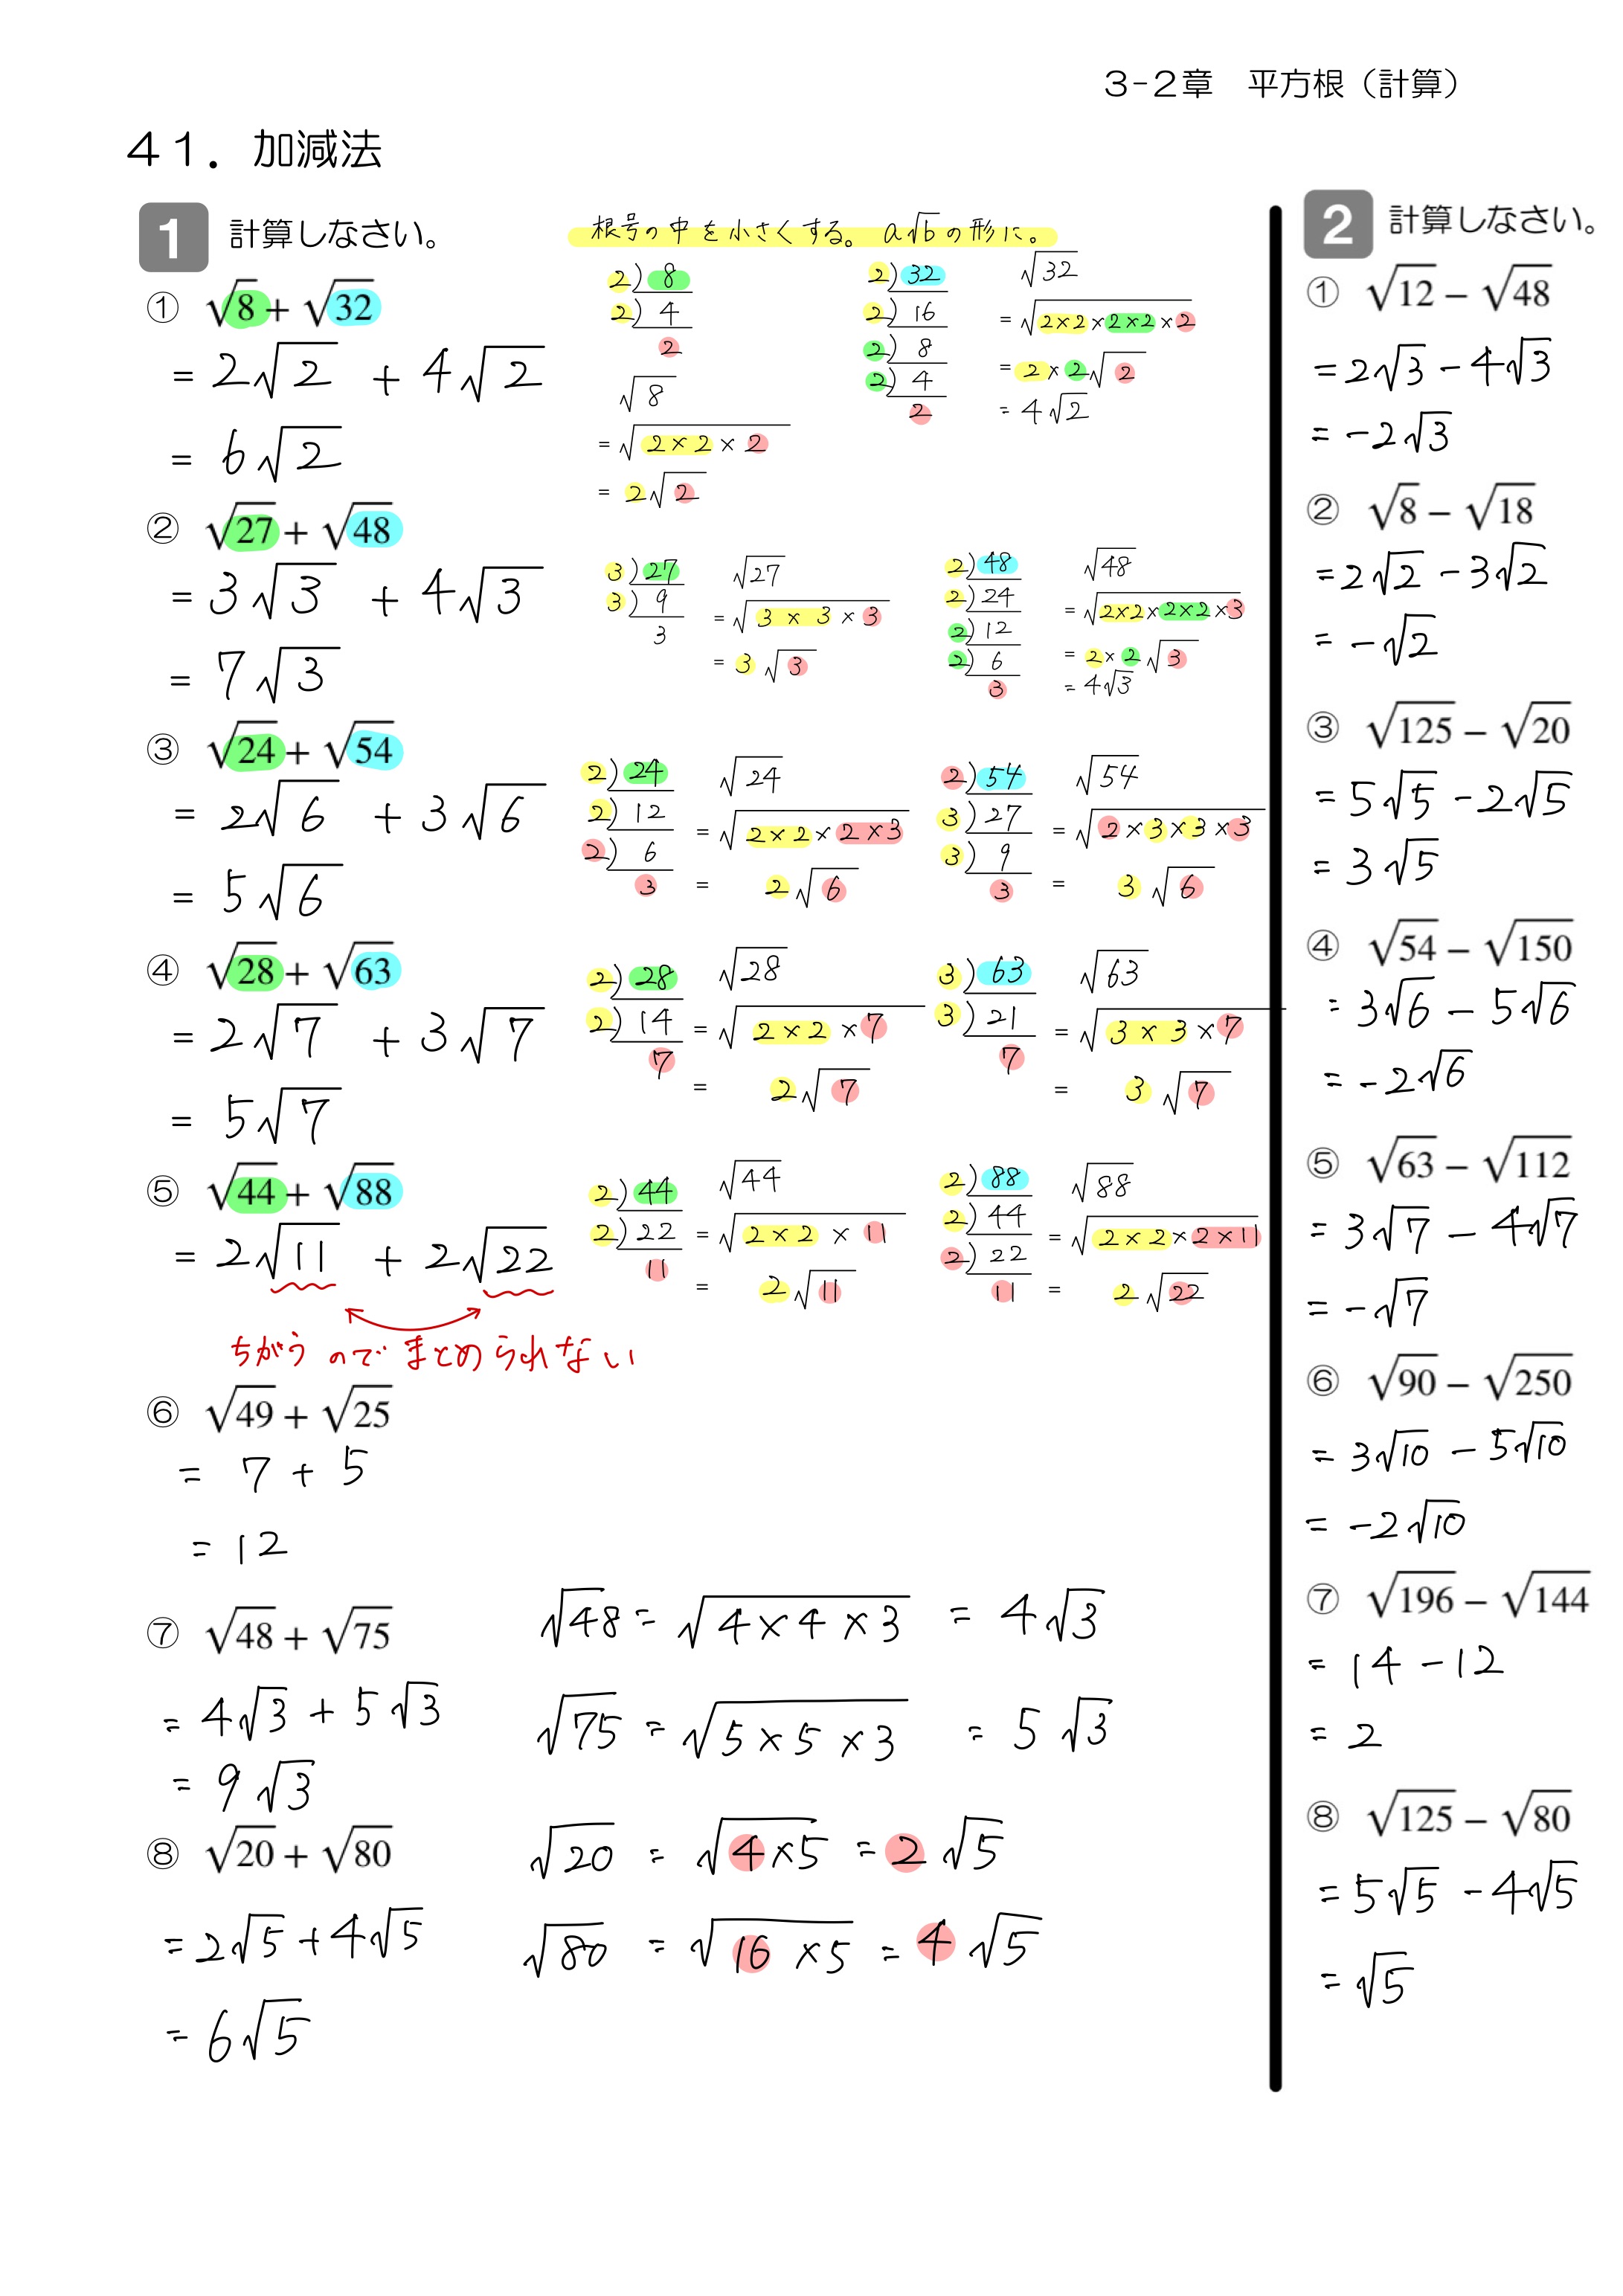 3-2章 平方根（計算）
41. 加減法
1 計算しなさい。
根号の中を小さくする。 a√b の形に。
① √8 + √32
= 2√2 + 4√2
= 6√2
2) 8
2) 4
2
√8
= √2×2×2
= 2√2
2) 32
2) 16
2) 8
2) 4
2
√32
= √2×2×2×2×2
= 2×2√2
= 4√2
② √27 + √48
= 3√3 + 4√3
= 7√3
3) 27
3) 9
3
√27
= √3×3×3
= 3√3
2) 48
2) 24
2) 12
2) 6
3
√48
= √2×2×2×2×3
= 2×2√3
= 4√3
③ √24 + √54
= 2√6 + 3√6
= 5√6
2) 24
2) 12
2) 6
3
√24
= √2×2×2×3
= 2√6
2) 54
3) 27
3) 9
3
√54
= √2×3×3×3
= 3√6
④ √28 + √63
= 2√7 + 3√7
= 5√7
2) 28
2) 14
7
√28
= √2×2×7
= 2√7
3) 63
3) 21
7
√63
= √3×3×7
= 3√7
⑤ √44 + √88
= 2√11 + 2√22
ちがうのでまとめられない
2) 44
2) 22
11
√44
= √2×2×11
= 2√11
2) 88
2) 44
2) 22
11
√88
= √2×2×2×11
= 2√22
⑥ √49 + √25
= 7 + 5
= 12
⑦ √48 + √75
= 4√3 + 5√3
= 9√3
√48 = √4×4×3 = 4√3
√75 = √5×5×3 = 5√3
⑧ √20 + √80
= 2√5 + 4√5
= 6√5
√20 = √4×5 = 2√5
√80 = √16×5 = 4√5
2 計算しなさい。
① √12 − √48
= 2√3 − 4√3
= −2√3
② √8 − √18
= 2√2 − 3√2
= −√2
③ √125 − √20
= 5√5 − 2√5
= 3√5
④ √54 − √150
= 3√6 − 5√6
= −2√6
⑤ √63 − √112
= 3√7 − 4√7
= −√7
⑥ √90 − √250
= 3√10 − 5√10
= −2√10
⑦ √196 − √144
= 14 − 12
= 2
⑧ √125 − √80
= 5√5 − 4√5
= √5